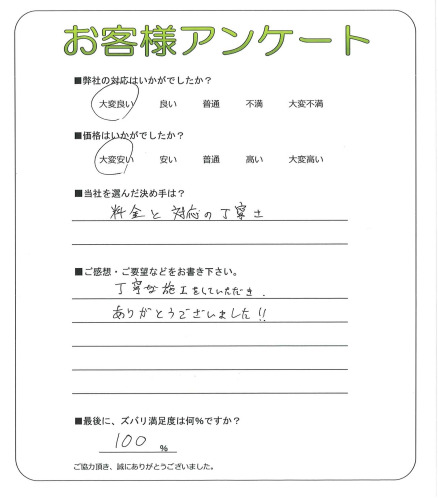 お客様アンケート
■弊社の対応はいかがでしたか？
大変良い 良い 普通 不満 大変不満
■価格はいかがでしたか？
大変安い 安い 普通 高い 大変高い
■当社を選んだ決め手は？
料金と対応の丁寧さ
■ご感想・ご要望などをお書き下さい。
丁寧な施工をしていただき、
ありがとうございました!!
■最後に、ズバリ満足度は何％ですか？
100 %
ご協力頂き、誠にありがとうございました。